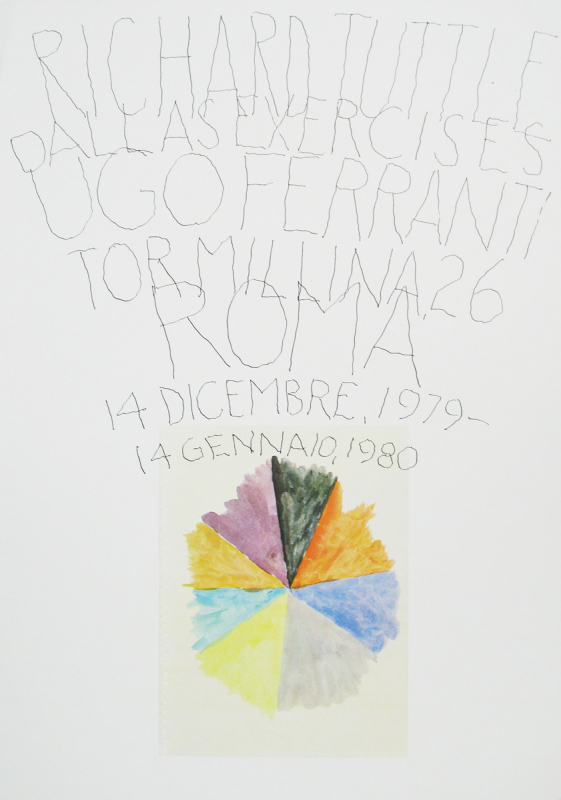 RICHARD TUTTLE
DALLAS EXERCISES
UGO FERRANTI
TOR MILLINA, 26
ROMA
14 DICEMBRE, 1979-
14 GENNAIO, 1980